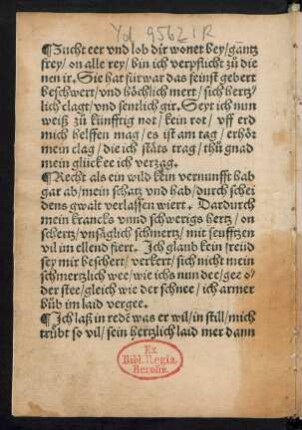 Yd 9562 R
¶Zucht eer vnd lob dir wonet bey/gantz
frey/on alle rey/bin ich verpflicht zü die
nen ir. Sie hat für war das feinst gebert
beschwert/vnd höchlich mert/sich hertz/
lich clagt/vnd sentlich gir. Seyt ich nun
weiß zü künfftig not/kein rot/vff erd
mich helffen mag/es ist am tag/erhör
mein clag/die ich stäts trag/thů gnad
mein glückee ich verzag.
¶Recht als ein wild kein vernunfft hab
gar ab/mein schatz vnd hab/durch schei
dens gwalt verlassen wiert. Dardurch
mein krancks vnnd schwerigs hertz/on
schertz/vnsäglich schmertz/mit seufftzen
vil im ellend fiert. Ich glaub kein freüd
sey mir beschert/verkert/sich nicht mein
schmertzlich wee/wie ichs nun dee/gee o/
der stee/gleich wie der schnee/ich armer
büb im laid vergee.
¶Ich laß in rede was er wil/in still/mich
trübt so vil/sein hertzlich laid mer dann
Ex
Bibl. Regia
Berolin.